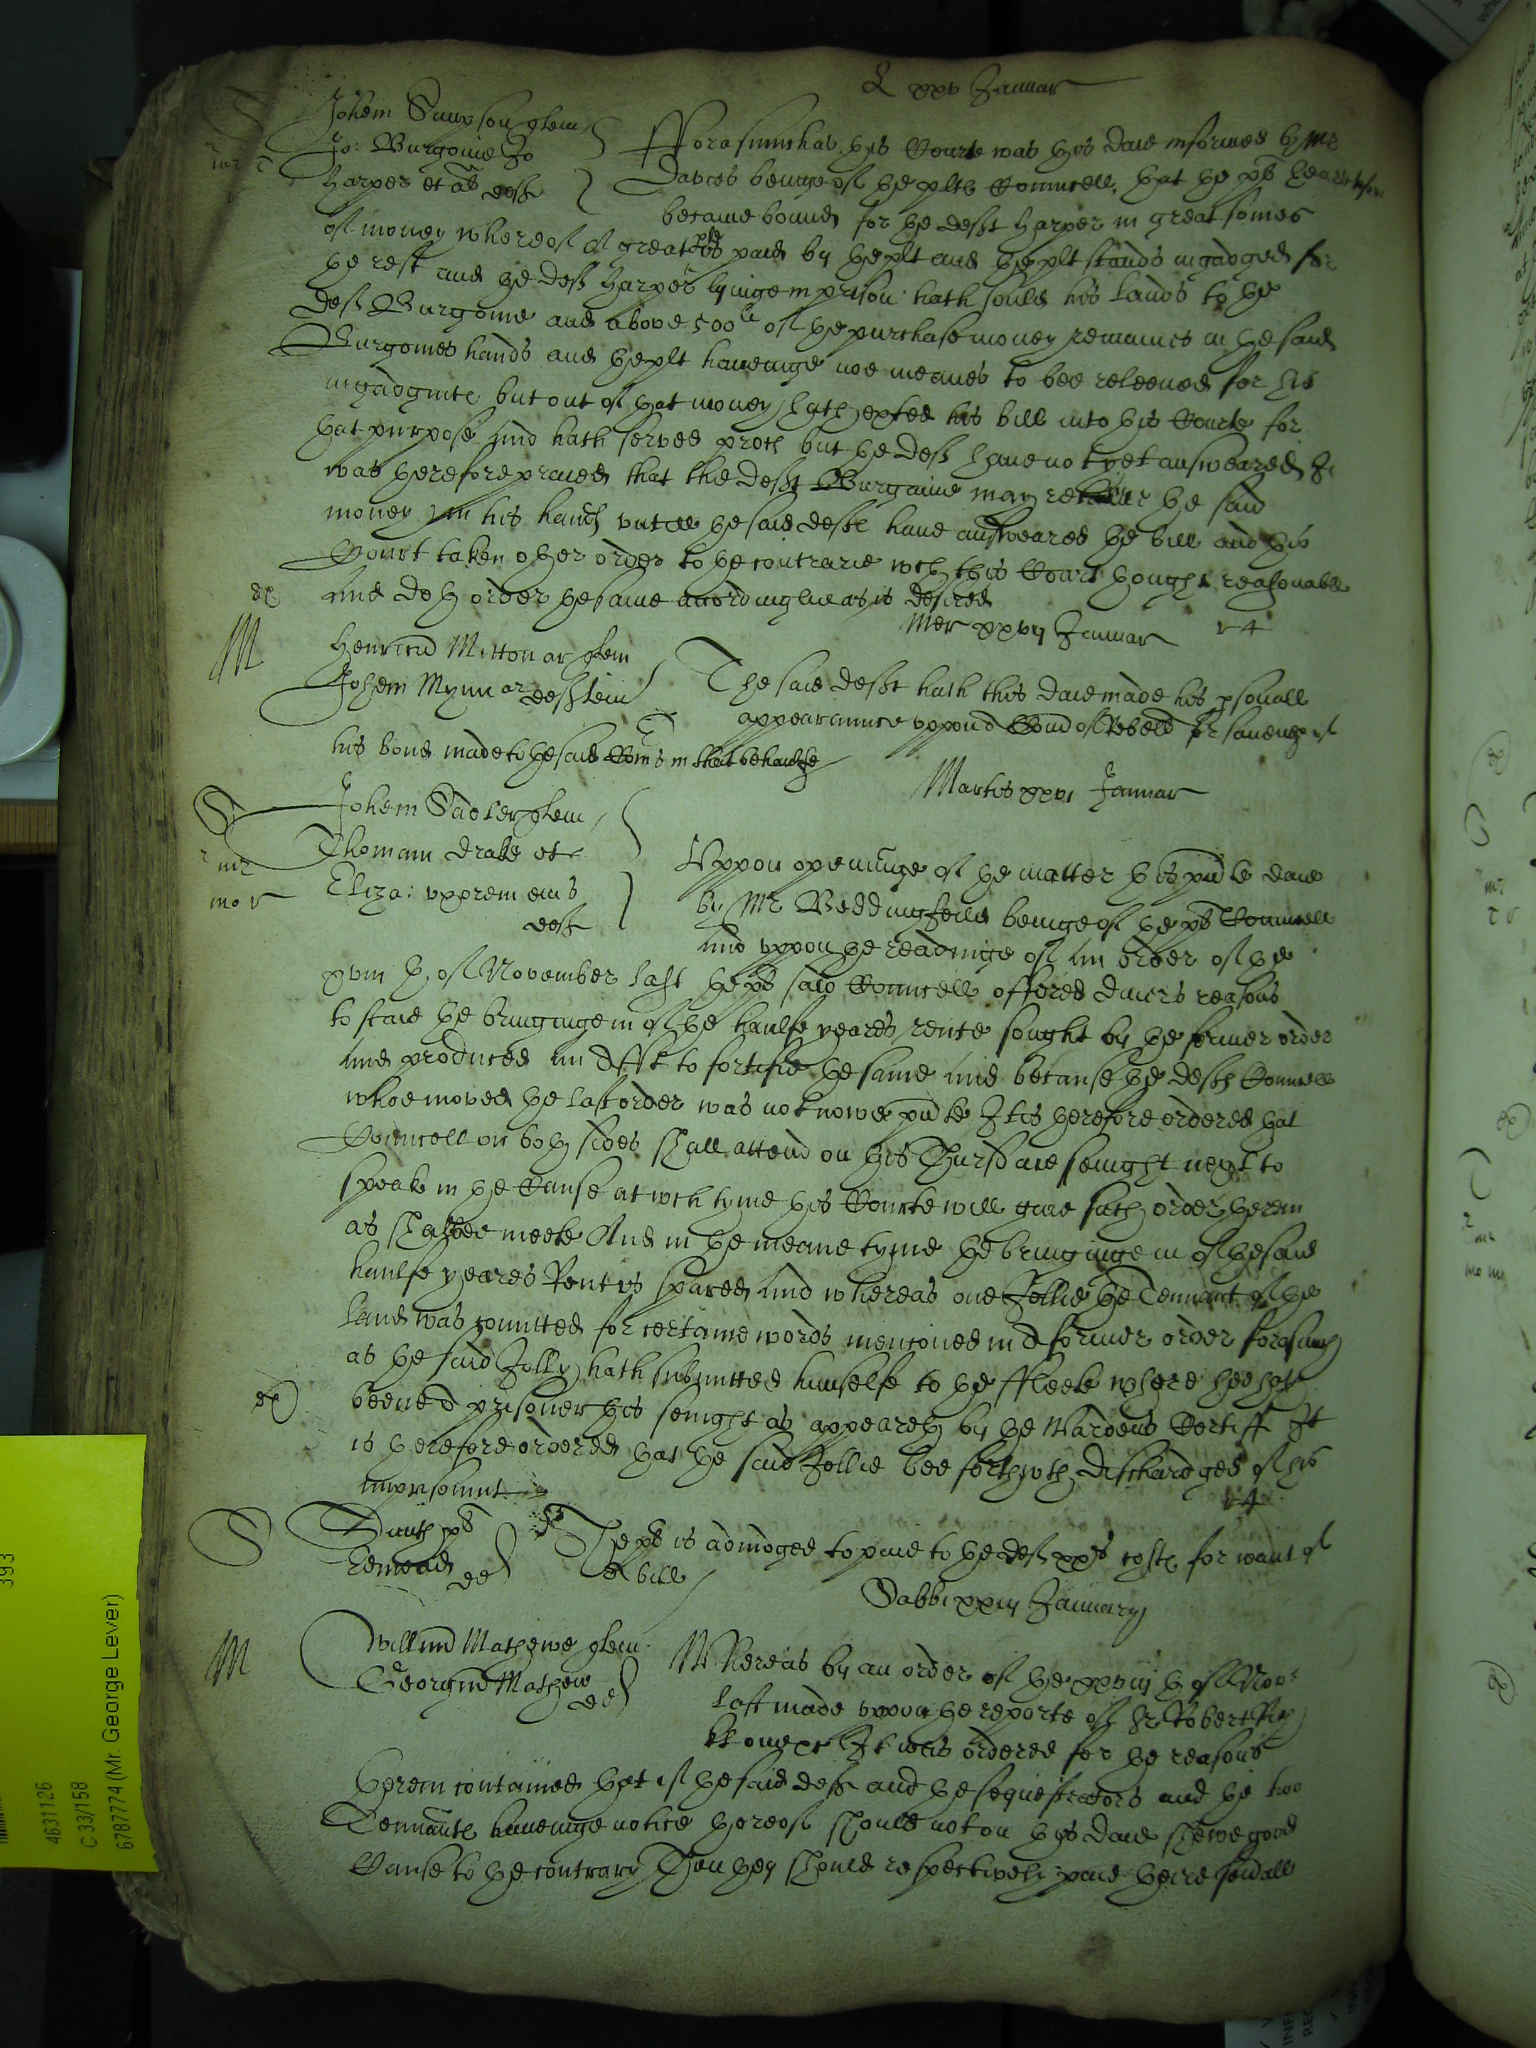 xxv Januar
Johem Sampson quer
Jo: Burgoine Jo
Harper et als deftes
Forasmuch as this Courte was this daie informed by Mr
Davies beinge of the pltes Councell, that the plt heretofore
became bound for the deft Harper in great somes
of money whereof a great pte is paied by the plt and the plt stands ingadged for
the rest and the deft Harper lyinge in prison hath sould his lands to the
deft Burgoine and above 500li of the purchase money remaines in the said
Burgoines hands and the plt haveinge noe meanes to bee releeved for his
ingadgmte but out of that money hath exhted his bill into this Courte for
that purpose and hath served proces but the defts have not yet answeared It
was therefore praied that the deft Burgoine may retaine the said
money in his hands untill the said deftes have answeared the bill and this
Court taken other order to the contrarie wch this Court thought reasonable
and doth order the same accordinglie as is desired
Mer xxvij Januar
M
Henricu Mitton ar quer
Johem Mynn ar deft
The said deft hath this daie made his psonall
appearannce uppon a Comd of Rebell for saveinge of
his bond made to the said Comrs in that behaulfe
Martis xxvi Januar
S
Johem Sadler quer
Thomam Drake et
Eliza: uxorem eius
deft
mr
Uppon openinge of the matter this psnte daie
by Mr Beddingfeild beinge of the pltes Councell
and uppon the readinge of an order of the
xviij th of November last the pltes said Councell offered divers reasons
to staie the bringinge in of the haulfe yeares rente sought by the former order
and produced an Afft to fortifie the same and because the deftes Councell
whoe moved the last order was not nowe psnte It is therefore ordered that
Councell on both sides shall attend on this Thursdaie senight next to
speake in the Cause at wch tyme this Courte will give such order therein
as shalbee meete And in the meane tyme the bringinge in of the said
haulfe yeares Rent is spared And whereas one Jollie the Tennant of the
land was comitted for certaine words mencioned in a former order forasmuch
as the said Jolly hath submitted himselfe to the Fleete where hee hath
beene a prisoner this senight as appeareth by the Wardens Certiff It
is therefore ordered that the said Jollie bee forthwth dischardged of his
imprisonmt
S
Smith plt
deft
The plt is adiudged to paie to the deft xxs costes for want of
a bill
Sabbi xxiij January
M
Willmu Mathewe quer
Georgiu Mathew
deft
Whereas by an order of the xxviij th of Nov
last made uppon the reporte of Sr Robert Rich
It was ordered for the reasons
therein contained that if the said deft and the sequestrators and the two
Tennants haveinge notice thereof should not on this daie shewe good
Cause to the contrary Then they should respectively paie theire severall
393
4631126
C 33/158
6787774 (Mr. George Lever)